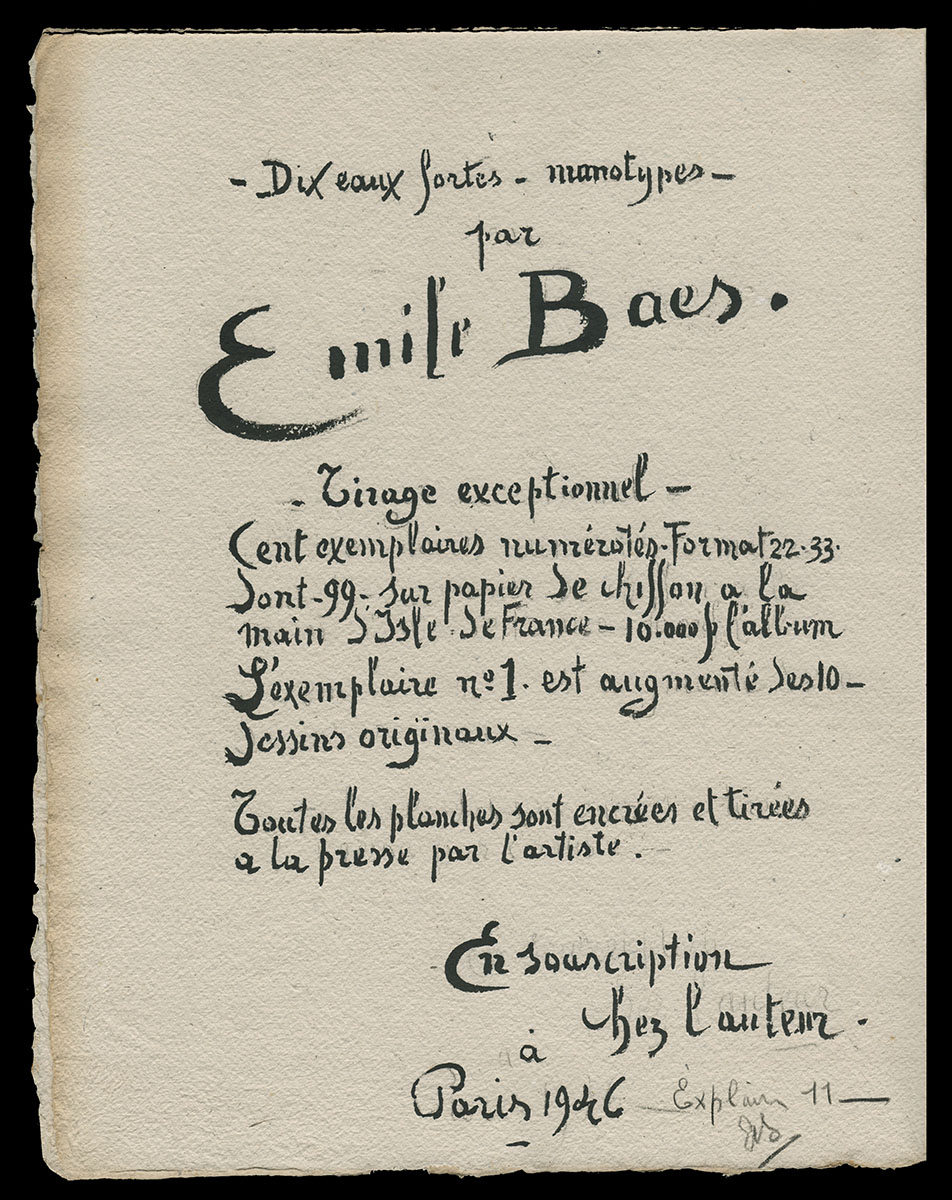 - Dix eaux fortes - monotypes -
par
Emile Baes.
- Tirage exceptionnel -
Cent exemplaires numérotés. Format 22.33.
dont - 99 - sur papier de chiffon a la
main d'Isle de France - 10.000 f l'album
L'exemplaire nº 1. est augmenté des 10 -
dessins originaux -
Toutes les planches sont encrées et tirées
a la presse par l'artiste.
En souscription
chez l'auteur.
à
Paris 1946
11